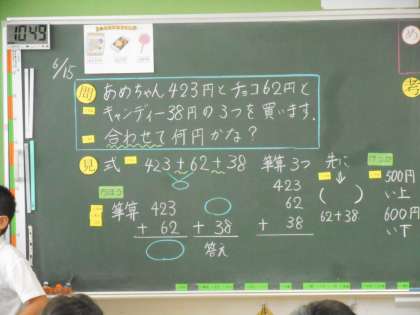 10:49
6/15
め
問
あめちゃん423円とチョコ62円と
キャンディー38円の3つを買います。
合わせて何円かな?
考
見
式 423+62+38
筆算
423
+ 62
+ 38
答え
筆算3つ
423
62
+ 38
先に
( )
62+38
500円
い上
600円
い下